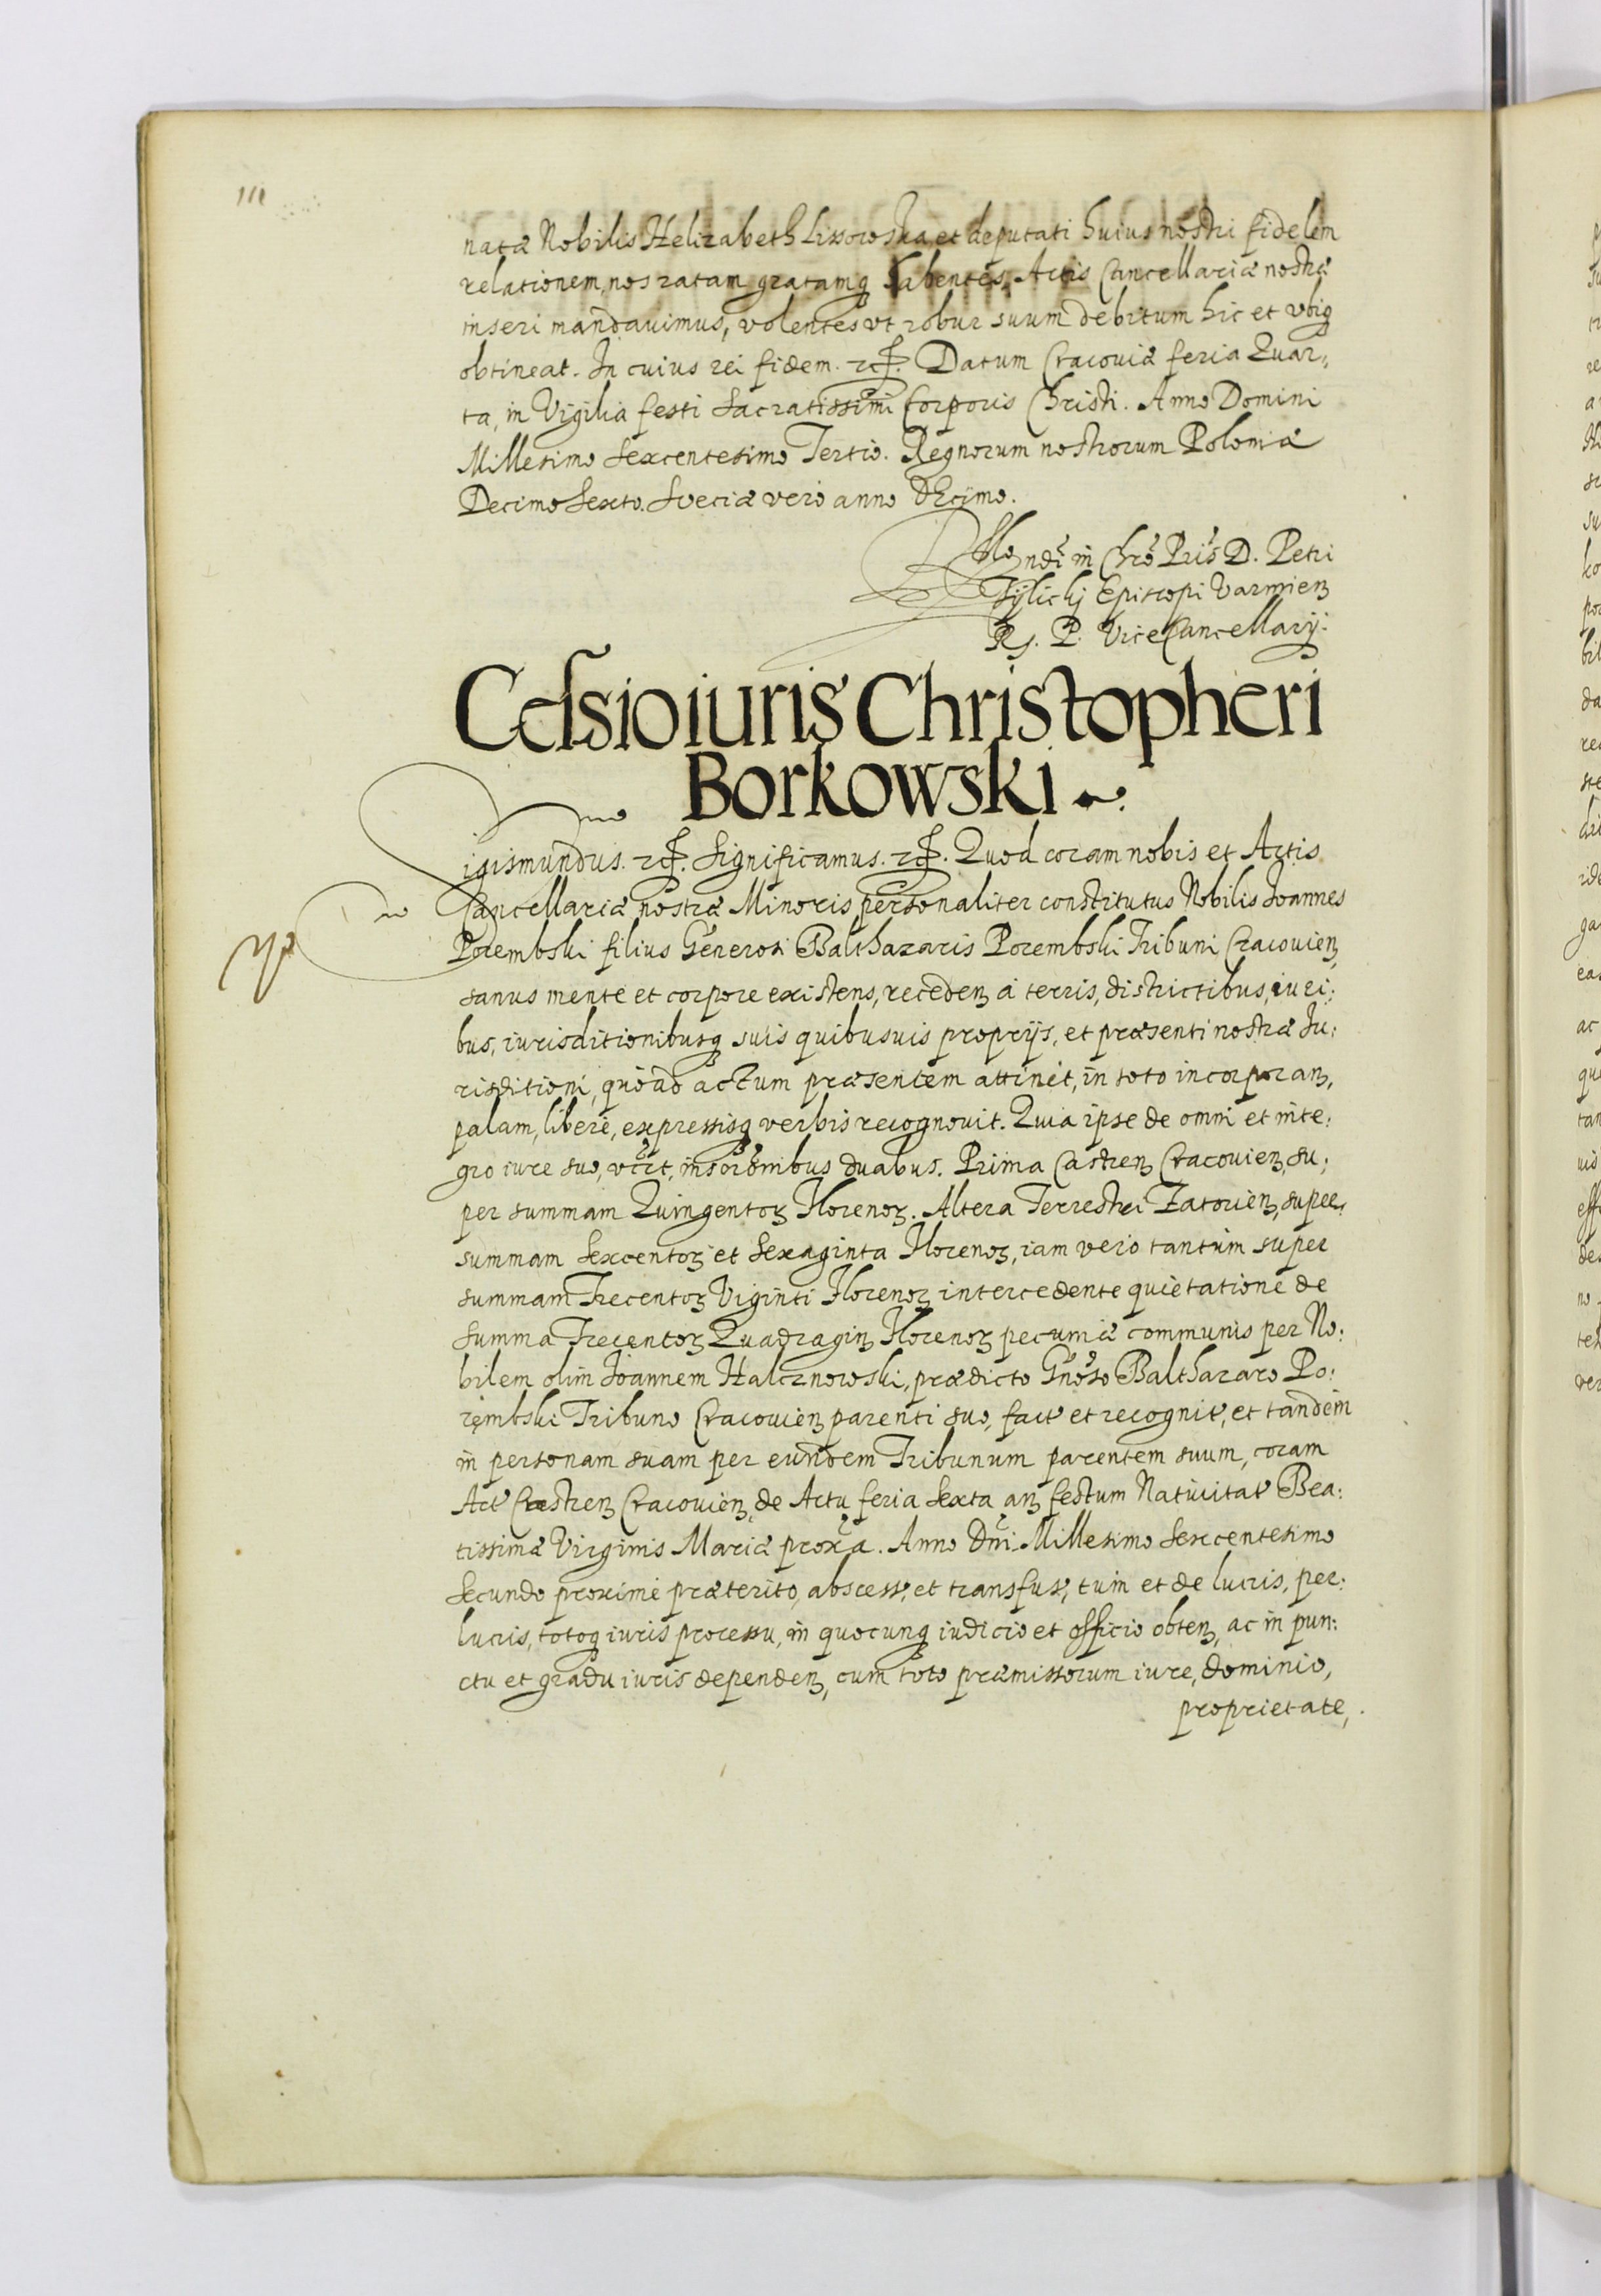 111
natæ Nobilis Helizabeth Lissowska, et deputati huius nostri fidelem
relationem, nos ratam gratamq habentes, Actis Cancellariæ nostræ
inseri mandauimus, volentes vt robur suum debitum hic et vbiq
obtineat. In cuius rei fidem. etc. Datum Cracouiæ feria Quar:
ta, in Vigilia festi Sacratissimi Corporis Christi. Anno Domini
Millesimo Sexcentesimo Tertio. Regnorum nostrorum Poloniæ
Decimo Sexto. Sueciæ vero anno decimo.
Rndi in Chro Pris D. Petri
Tylicky Episcopi Varmien
Rg. P. ViceCancellarij.
Cessio iuris Christopheri
Borkowski
Sigismundus. etc. Significamus. etc. Quod coram nobis et Actis
Cancellariæ nostræ Minoris personaliter constitutus Nobilis Joannes
Porembski filius Generosi Balthazaris Porembski Tribuni Cracouien,
sanus mente et corpore existens, receden a terris, districtibus, iuri:
bus, iurisditionibusq suis quibusuis proprijs, et præsenti nostræ Ju:
risditioni, quoad actum præsentem attinet, in toto incorporan,
palam, libere, expressisq verbis recognouit. Quia ipse de omni et inte:
gro iure suo, inscrōnibus duabus. Prima Castren Cracouien, su:
per summam Quingentoꝝ Florenoꝝ. Altera Terrestri Zatorien, super
summam Sexcentoꝝ et Sexaginta Florenoꝝ, iam vero tantum super
summam Trecentoꝝ Viginti Florenoꝝ intercedente quietatione de
summa Trecentoꝝ Quadragin Florenoꝝ pecuniæ communis per No:
bilem olim Joannem Halcznowski, prædicto Gnoso Balthazaro Po:
rembski Tribuno Cracouien parenti suo, fact et recognit, et tandem
in personam suam per eundem Tribunum parentem suum, coram
Act Castren Cracouien, de Actu feria Sexta an festum Natiuitat Bea:
tissimæ Virginis Mariæ proxa. Anno Dni Millesimo Sexcentesimo
Secundo proxime præterito, abscess, et transfus, tum et de lucris, per:
lucris, totoq iuris processu, in quocunq iudicio et officio obten, ac in pun:
ctu et gradu iuris dependen, cum toto præmissorum iure, dominio,
proprietate,